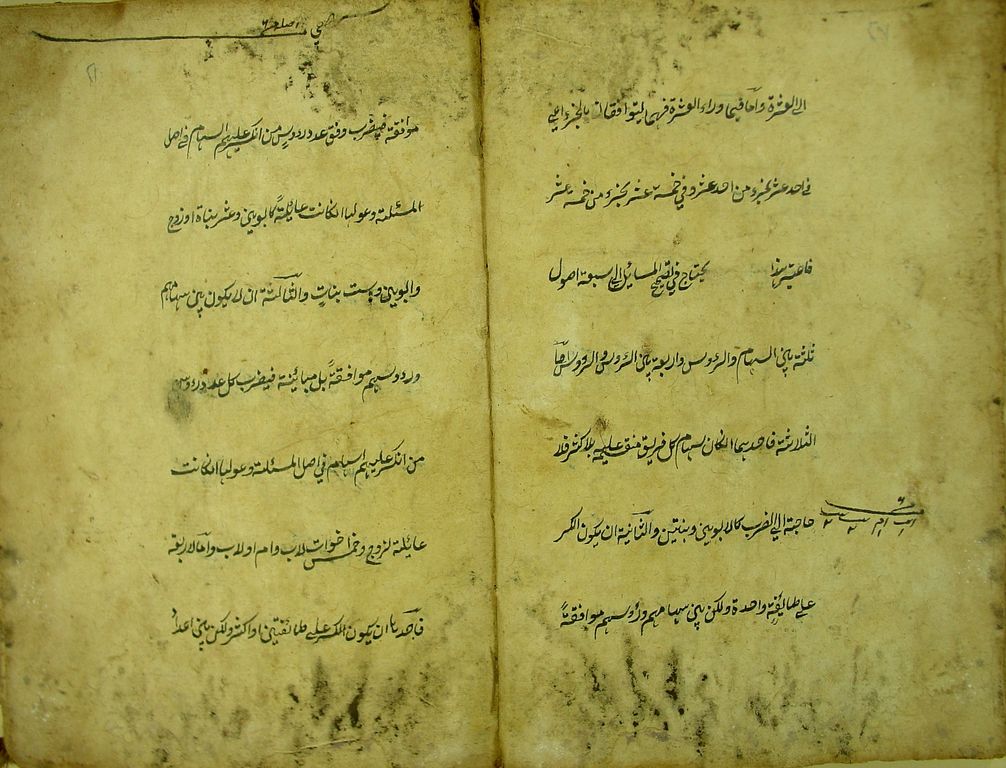 الى العشرة واما فيما وراء العشرة فهما ليتوافقان بالجزء اعني
فى احد عشر بجزء من احد عشر وفى خمسة عشر بجزء من خمسة عشر
فاعتبر هذا يحتاج فى تصحيح المسائل الى سبعة اصول
ثلثة بين السهام والرؤس واربعة بين الرؤس والرؤس اما
الثلاثة فاحديهما ان كان سهام كل فريق منقسمة عليهم بلا كسر فلا
حاجة الى الضرب كالابوين وبنتين والثانية ان يكون الكسر
على طايفة واحدة ولكن بين سهامهم ورؤسهم موافقةً
موافقة فيضرب وفق عدد رؤس من انكسر عليهم السهام فى اصل
المسئلة وعولها ان كانت عايلةً كابوين وعشر بناة او زوج
وابوين وست بنات والثالثة ان لا يكون بين سهامهم
وردوسهم موافقةً بل مبائنة فيضرب كل عدد رؤس
من انكسر عليهم السهام فى اصل المسئلة وعولها ان كانت
عايلة لزوج وخمس اخوات لاب وام او لاب واما الاربعة
فاحديها ان يكون الكسر على طائفتين او اكثر ولكن بين اعداد